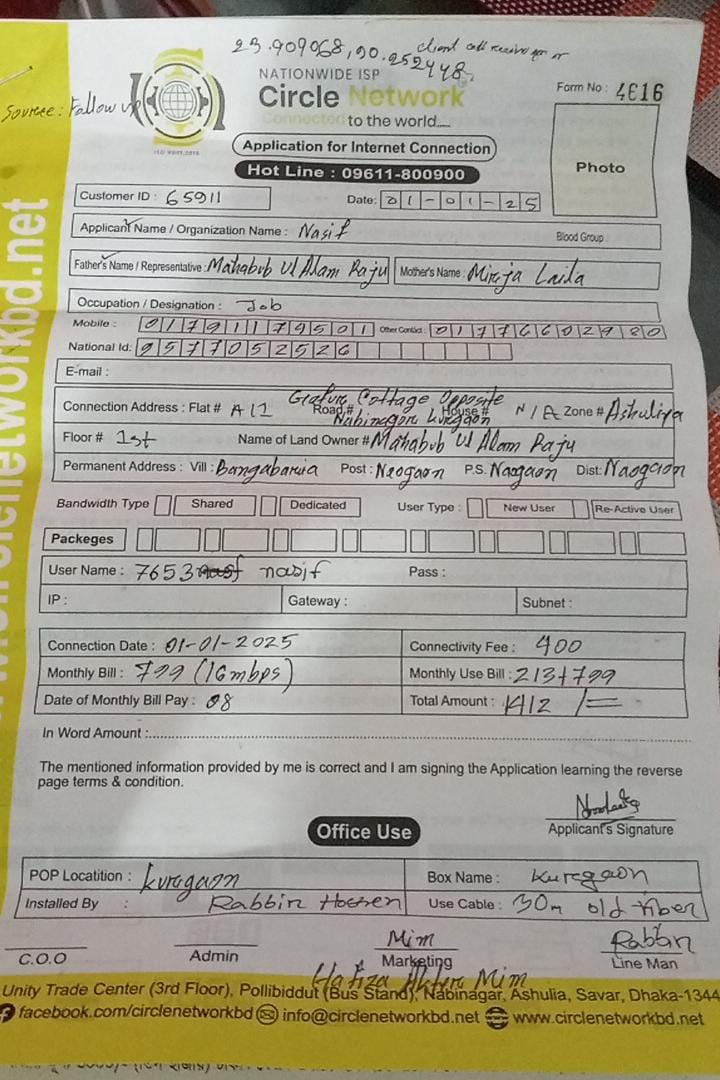 23.909068,90.252448 client call
NATIONWIDE ISP
Circle Network
Connected to the world....
Source: Follow up
Form No : 4616
Application for Internet Connection
Hot Line : 09611-800900
Photo
Customer ID : 65911 Date: 01-01-25
Applicant Name / Organization Name : Nasif Blood Group :
Father's Name / Representative : Mahabub Ul Alam Raju Mother's Name : Mirja Laila
Occupation / Designation : Job
Mobile : 01791179501 Other Contact : 01776602980
National Id: 9577052526
E-mail :
Cottage Opposite
Connection Address : Flat # A11 Road # House # N/A Zone # Ashuliya
Nabinagor Kurgaon
Floor # 1st Name of Land Owner # Mahabub Ul Alam Raju
Permanent Address : Vill : Bangabaria Post : Naogaon P.S. Naogaon Dist: Naogaon
Bandwidth Type Shared Dedicated User Type : New User Re-Active User
Packeges
User Name : 7653 nasif Pass :
IP : Gateway : Subnet :
Connection Date : 01-01-2025 Connectivity Fee : 400
Monthly Bill : 799 (16mbps) Monthly Use Bill : 213+799
Date of Monthly Bill Pay : 08 Total Amount : 1412 /=
In Word Amount :
The mentioned information provided by me is correct and I am signing the Application learning the reverse
page terms & condition.
Applicant's Signature
Office Use
POP Locatition : Kurgaon Box Name : Kurgaon
Installed By : Rabbin Hossen Use Cable : 30m old fiber
Mim Rabbin
C.O.O Admin Marketing Line Man
Hafiza Akter Mim
Unity Trade Center (3rd Floor), Pollibiddut (Bus Stand), Nabinagar, Ashulia, Savar, Dhaka-1344
facebook.com/circlenetworkbd info@circlenetworkbd.net www.circlenetworkbd.net